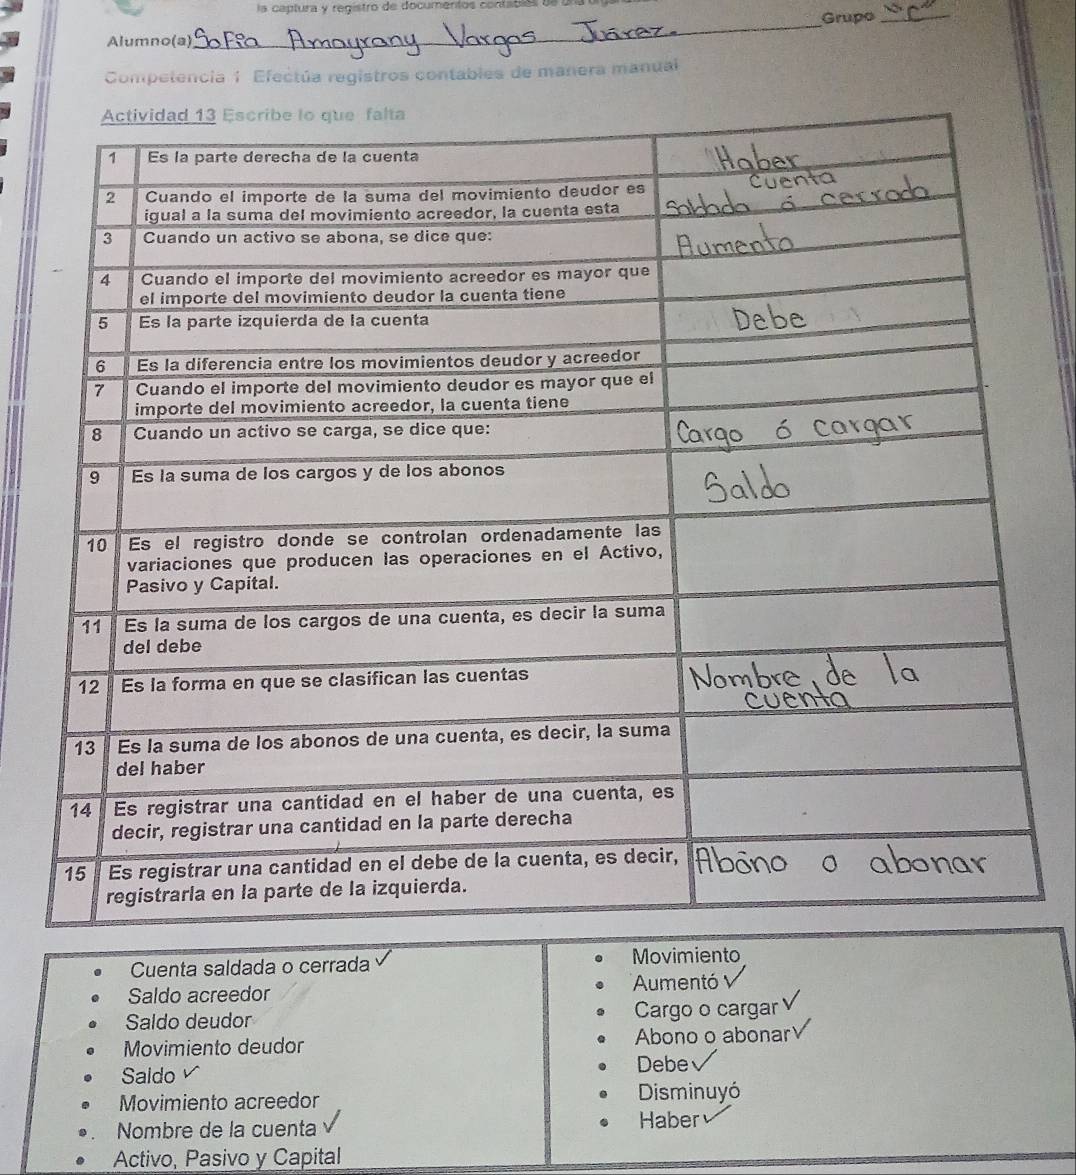 la captura y registro de documentos contables de una
Grupo
Alumno(a) Sofia Amayrany Vargas Juárez.
Competencia 1 Efectúa registros contables de manera manual
Actividad 13 Escribe lo que falta
1 Es la parte derecha de la cuenta Haber
2 Cuando el importe de la suma del movimiento deudor es Cuenta
igual a la suma del movimiento acreedor, la cuenta esta Saldada ó cerrada
3 Cuando un activo se abona, se dice que: Aumento
4 Cuando el importe del movimiento acreedor es mayor que
el importe del movimiento deudor la cuenta tiene
5 Es la parte izquierda de la cuenta Debe
6 Es la diferencia entre los movimientos deudor y acreedor
7 Cuando el importe del movimiento deudor es mayor que el
importe del movimiento acreedor, la cuenta tiene
8 Cuando un activo se carga, se dice que: Cargo ó cargar
9 Es la suma de los cargos y de los abonos Saldo
10 Es el registro donde se controlan ordenadamente las
variaciones que producen las operaciones en el Activo,
Pasivo y Capital.
11 Es la suma de los cargos de una cuenta, es decir la suma
del debe
12 Es la forma en que se clasifican las cuentas Nombre de la
cuenta
13 Es la suma de los abonos de una cuenta, es decir, la suma
del haber
14 Es registrar una cantidad en el haber de una cuenta, es
decir, registrar una cantidad en la parte derecha
15 Es registrar una cantidad en el debe de la cuenta, es decir, Abono o abonar
registrarla en la parte de la izquierda.
• Cuenta saldada o cerrada ✓
• Saldo acreedor
• Saldo deudor
• Movimiento deudor
• Saldo ✓
• Movimiento acreedor
• Nombre de la cuenta ✓
• Activo, Pasivo y Capital
• Movimiento
• Aumentó ✓
• Cargo o cargar ✓
• Abono o abonar ✓
• Debe ✓
• Disminuyó
• Haber ✓